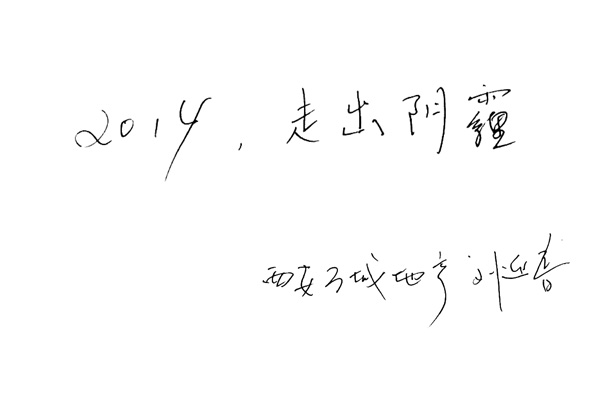 2014，走出阴霾
西安万城地产 刘迎春